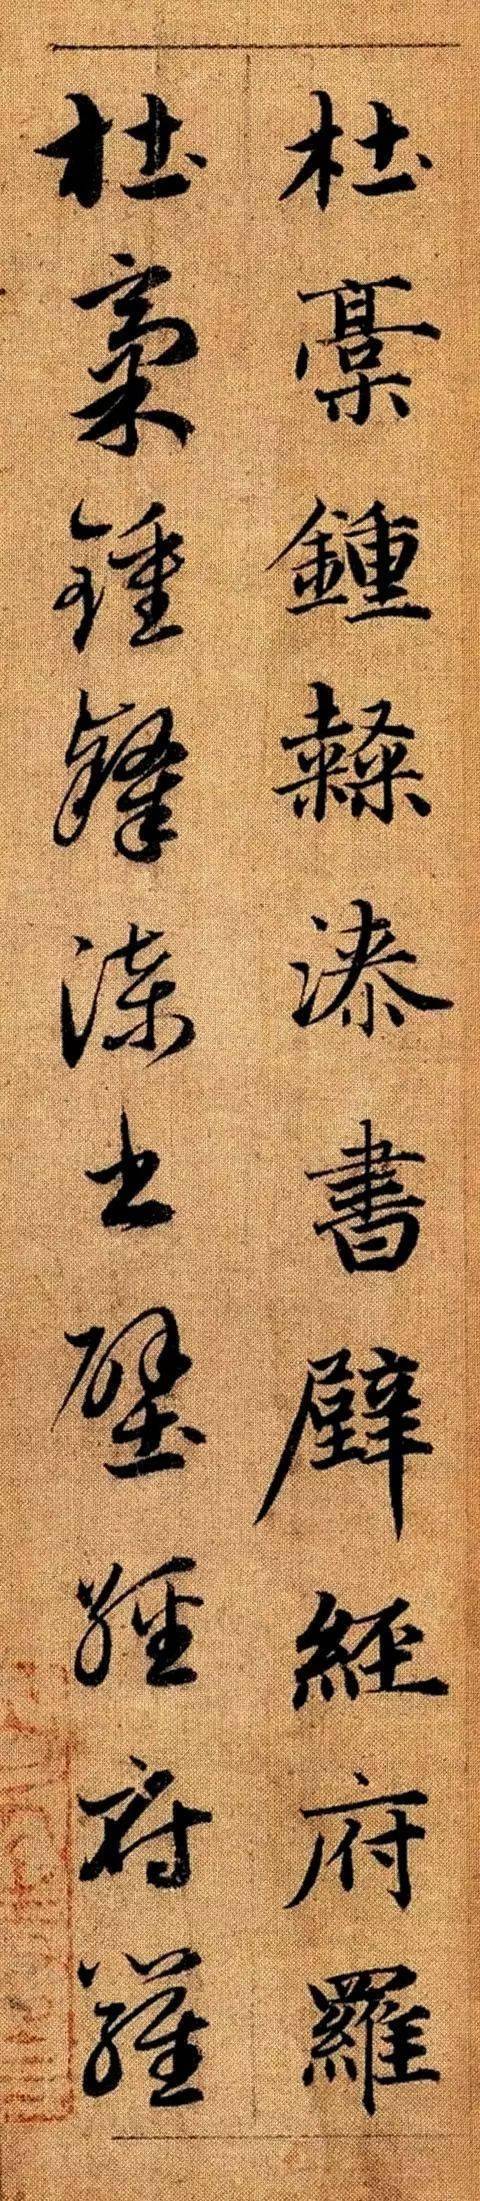 杜槀鍾隸漆書壁經府羅
杜槀鍾隸漆書壁經府羅